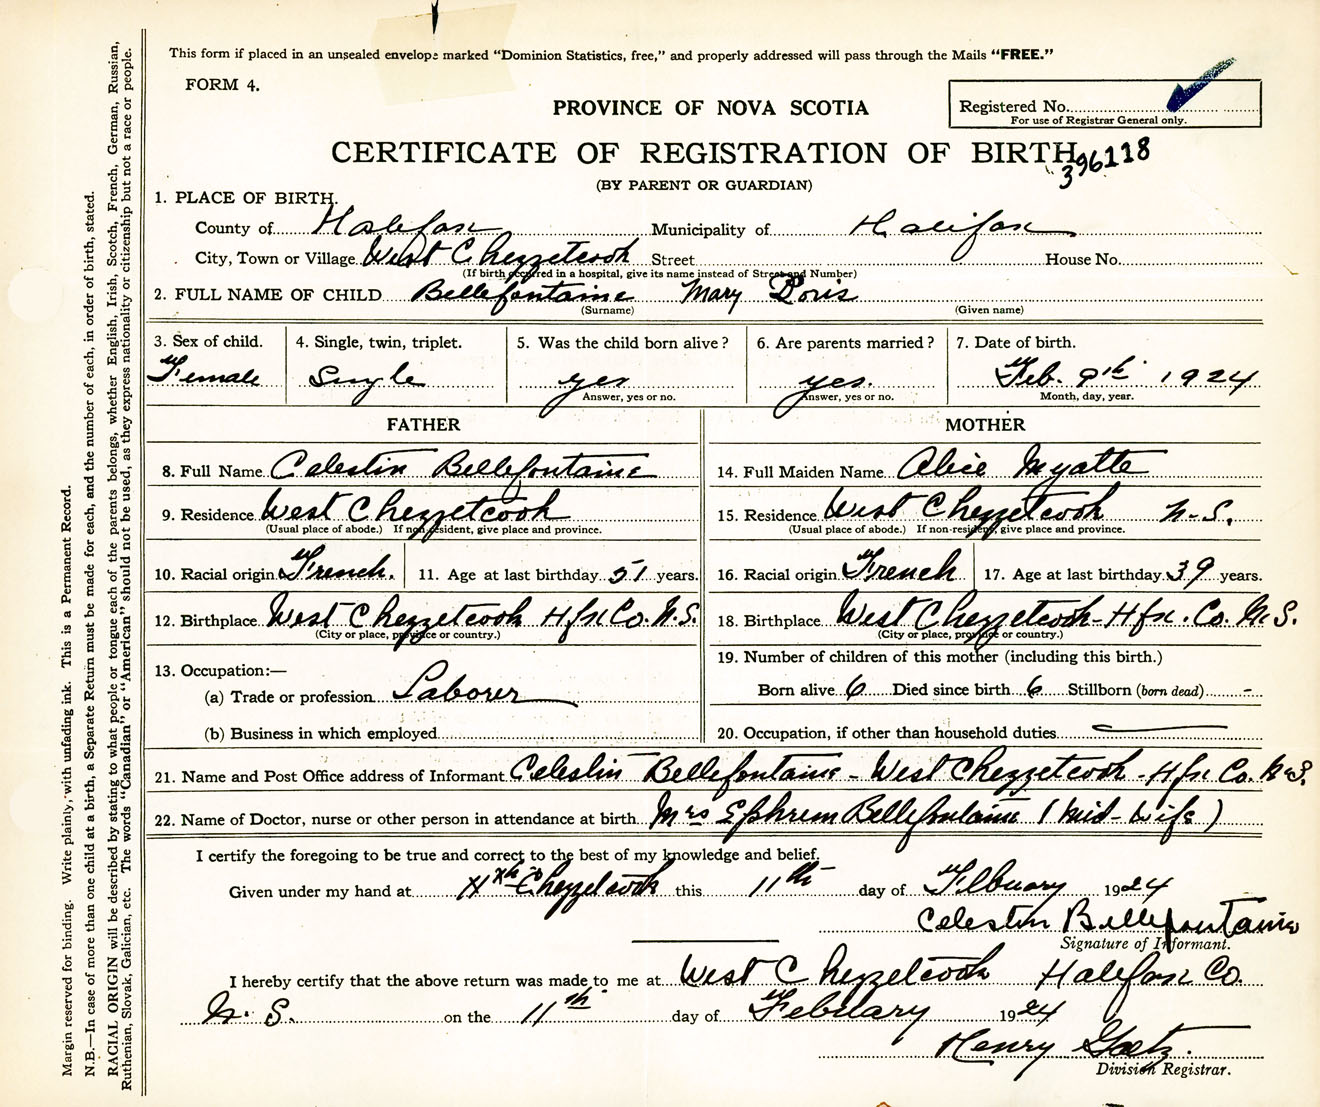 This form if placed in an unsealed envelope marked "Dominion Statistics, free," and properly addressed will pass through the Mails "FREE."
FORM 4.
PROVINCE OF NOVA SCOTIA
Registered No.
For use of Registrar General only.
CERTIFICATE OF REGISTRATION OF BIRTH
396118
(BY PARENT OR GUARDIAN)
1. PLACE OF BIRTH.
County of Halefax Municipality of Halifax
City, Town or Village West Chezzetcook Street House No.
(If birth occurred in a hospital, give its name instead of Street and Number)
2. FULL NAME OF CHILD Bellefontaine Mary Doris
(Surname) (Given name)
3. Sex of child. Female
4. Single, twin, triplet. Single
5. Was the child born alive? yes
Answer, yes or no.
6. Are parents married? yes.
Answer, yes or no.
7. Date of birth. Feb. 9th 1924
Month, day, year.
FATHER
8. Full Name Celestin Bellefontaine
9. Residence West Chezzetcook
(Usual place of abode.) If non-resident, give place and province.
10. Racial origin French. 11. Age at last birthday 51 years.
12. Birthplace West Chezzetcook Hfx Co. N.S.
(City or place, province or country.)
13. Occupation:—
(a) Trade or profession Laborer
(b) Business in which employed
MOTHER
14. Full Maiden Name Alice Myatte
15. Residence West Chezzetcook N-S.
(Usual place of abode.) If non-resident, give place and province.
16. Racial origin French 17. Age at last birthday 39 years.
18. Birthplace West Chezzetcook-Hfx. Co. N.S.
(City or place, province or country.)
19. Number of children of this mother (including this birth.)
Born alive 6 Died since birth 6 Stillborn (born dead) -
20. Occupation, if other than household duties
21. Name and Post Office address of Informant Celestin Bellefontaine - West Chezzetcook - Hfx Co. N.S.
22. Name of Doctor, nurse or other person in attendance at birth Mrs Ephrem Bellefontaine (Mid-Wife)
I certify the foregoing to be true and correct to the best of my knowledge and belief.
Given under my hand at Chezzetcook this 11th day of Filbuary 1924
Celestin Bellefontaine
Signature of Informant.
I hereby certify that the above return was made to me at West Chezzetcook Halefax Co.
N. S. on the 11th day of February 1924
Henry Goetz.
Division Registrar.
Margin reserved for binding. Write plainly, with unfading ink. This is a Permanent Record.
N.B.—In case of more than one child at a birth, a Separate Return must be made for each, and the number of each, in order of birth, stated.
RACIAL ORIGIN will be described by stating to what people or tongue each of the parents belongs, whether English, Irish, Scotch, French, German, Russian,
Ruthenian, Slovak, Galician, etc. The words "Canadian" or "American" should not be used, as they express nationality or citizenship but not a race or people.